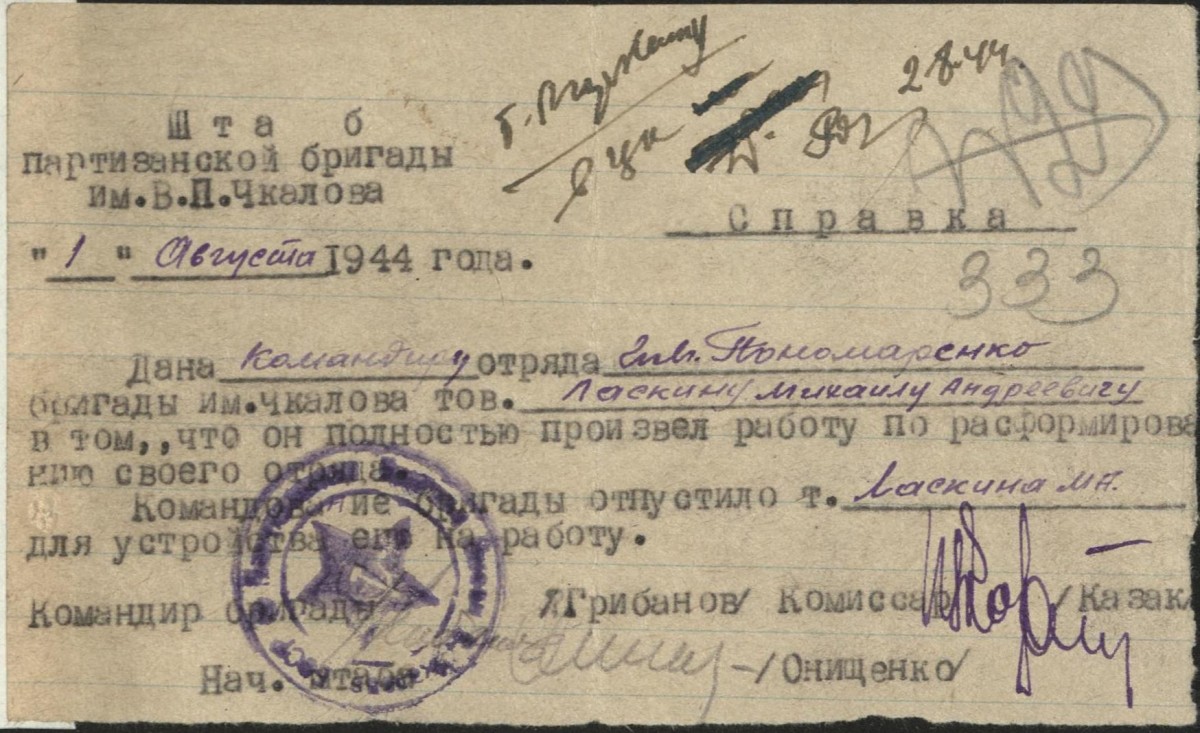 2.8.44.
Штаб
партизанской бригады
им.В.П.Чкалова
Справка
"1" Августа 1944 года.
333
Дана Командиру отряда им. Пономаренко
бригады им.Чкалова тов. Ласкину Михаилу Андреевичу
в том,,что он полностью произвел работу по расформирова
нию своего отряда.
Командование бригады отпустило т. Ласкина М.А.
для устройства его на работу.
Командир бригады /Грибанов/ Комиссар /Казак/
Нач. штаба -/Онищенко/